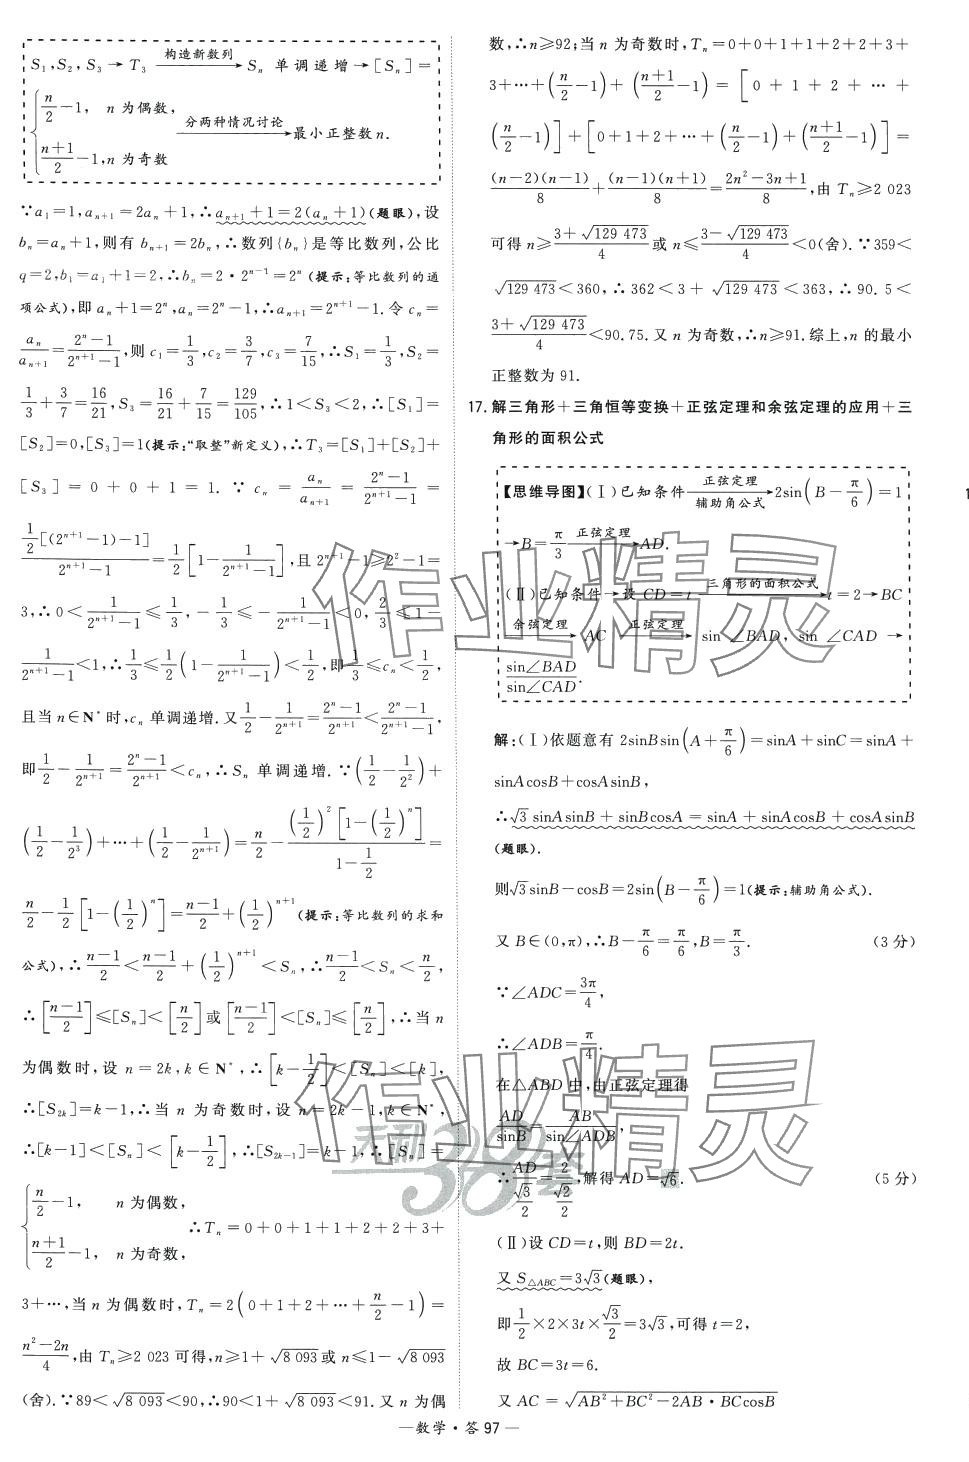 S₁,S₂,S₃→T₃ —构造新数列→ Sₙ 单调递增→[Sₙ]=
{n/2-1, n 为偶数,
(n+1)/2-1,n 为奇数 —分两种情况讨论→最小正整数n.
∵a₁=1,aₙ₊₁=2aₙ+1,∴aₙ₊₁+1=2(aₙ+1)(题眼),设
bₙ=aₙ+1,则有 bₙ₊₁=2bₙ,∴数列{bₙ}是等比数列,公比
q=2,b₁=a₁+1=2,∴bₙ=2·2ⁿ⁻¹=2ⁿ(提示:等比数列的通
项公式),即 aₙ+1=2ⁿ,aₙ=2ⁿ-1,∴aₙ₊₁=2ⁿ⁺¹-1.令 cₙ=
aₙ/aₙ₊₁=(2ⁿ-1)/(2ⁿ⁺¹-1),则 c₁=1/3,c₂=3/7,c₃=7/15,∴S₁=1/3,S₂=
1/3+3/7=16/21,S₃=16/21+7/15=129/105,∴1<S₃<2,∴[S₁]=
[S₂]=0,[S₃]=1(提示:“取整”新定义),∴T₃=[S₁]+[S₂]+
[S₃]=0+0+1=1.∵cₙ=aₙ/aₙ₊₁=(2ⁿ-1)/(2ⁿ⁺¹-1)=
(1/2[(2ⁿ⁺¹-1)-1])/(2ⁿ⁺¹-1)=1/2[1-1/(2ⁿ⁺¹-1)],且 2ⁿ⁺¹-1≥2²-1=
3,∴0<1/(2ⁿ⁺¹-1)≤1/3,-1/3≤-1/(2ⁿ⁺¹-1)<0,2/3≤1-
1/(2ⁿ⁺¹-1)<1,∴1/3≤1/2(1-1/(2ⁿ⁺¹-1))<1/2,即1/3≤cₙ<1/2,
且当 n∈N* 时,cₙ 单调递增.又1/2-1/2ⁿ⁺¹=(2ⁿ-1)/2ⁿ⁺¹<(2ⁿ-1)/(2ⁿ⁺¹-1),
即1/2-1/2ⁿ⁺¹=(2ⁿ-1)/2ⁿ⁺¹<cₙ,∴Sₙ 单调递增.∵(1/2-1/2²)+
(1/2-1/2³)+…+(1/2-1/2ⁿ⁺¹)=n/2-((1/2)²[1-(1/2)ⁿ])/(1-1/2)=
n/2-1/2[1-(1/2)ⁿ]=(n-1)/2+(1/2)ⁿ⁺¹(提示:等比数列的求和
公式),∴(n-1)/2<(n-1)/2+(1/2)ⁿ⁺¹<Sₙ,∴(n-1)/2<Sₙ<n/2,
∴[(n-1)/2]≤[Sₙ]<[n/2]或[(n-1)/2]<[Sₙ]≤[n/2],∴当 n
为偶数时,设 n=2k,k∈N*,∴[k-1/2]<[Sₙ]<[k],
∴[S₂ₖ]=k-1,∴当 n 为奇数时,设 n=2k-1,k∈N*,
∴[k-1]<[Sₙ]<[k-1/2],∴[S₂ₖ₋₁]=k-1,∴[Sₙ]=
{n/2-1, n 为偶数,
(n+1)/2-1, n 为奇数, ∴Tₙ=0+0+1+1+2+2+3+
3+…,当 n 为偶数时,Tₙ=2(0+1+2+…+n/2-1)=
(n²-2n)/4,由 Tₙ≥2 023可得,n≥1+√8 093或 n≤1-√8 093
(舍).∵89<√8 093<90,∴90<1+√8 093<91.又 n 为偶
数,∴n≥92;当 n 为奇数时,Tₙ=0+0+1+1+2+2+3+
3+…+(n/2-1)+((n+1)/2-1)=[0+1+2+…+
(n/2-1)]+[0+1+2+…+(n/2-1)+((n+1)/2-1)]=
(n-2)(n-1)/8+(n-1)(n+1)/8=(2n²-3n+1)/8,由 Tₙ≥2 023
可得 n≥(3+√129 473)/4或 n≤(3-√129 473)/4<0(舍).∵359<
√129 473<360,∴362<3+√129 473<363,∴90.5<
(3+√129 473)/4<90.75.又 n 为奇数,∴n≥91.综上,n 的最小
正整数为 91.
17.解三角形+三角恒等变换+正弦定理和余弦定理的应用+三
角形的面积公式
【思维导图】(Ⅰ)已知条件 —正弦定理/辅助角公式→2sin(B-π/6)=1
→B=π/3 —正弦定理→AD.
(Ⅱ)已知条件→设 CD=t —三角形的面积公式→t=2→BC
—余弦定理→AC —正弦定理→sin∠BAD,sin∠CAD→
sin∠BAD/sin∠CAD.
解:(Ⅰ)依题意有 2sinBsin(A+π/6)=sinA+sinC=sinA+
sinAcosB+cosAsinB,
∴√3 sinAsinB+sinBcosA=sinA+sinAcosB+cosAsinB
(题眼).
则√3 sinB-cosB=2sin(B-π/6)=1(提示:辅助角公式).
又 B∈(0,π),∴B-π/6=π/6,B=π/3. (3分)
∵∠ADC=3π/4,
∴∠ADB=π/4.
在△ABD 中,由正弦定理得
AD/sinB=AB/sin∠ADB,
∴AD/(√3/2)=2/(√2/2),解得 AD=√6. (5分)
(Ⅱ)设 CD=t,则 BD=2t.
又 S△ABC=3√3(题眼),
即1/2×2×3t×√3/2=3√3,可得 t=2,
故 BC=3t=6.
又 AC=√(AB²+BC²-2AB·BCcosB)
—数学·答97—
作业精灵
作业精灵
天利38套